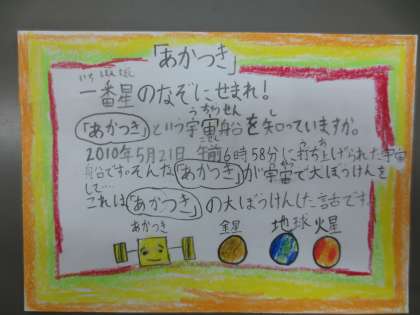 「あかつき」
いち ばん ぼし
一番星のなぞにせまれ!
うちゅうせん し
「あかつき」という宇宙船を知っていますか。
2010年5月21日 午前6時58分に打ち上げられた宇宙
船です。そんな「あかつき」が宇宙で大ぼうけんを
して…
これは「あかつき」の大ぼうけんした話です!
あかつき 金星 地球 火星